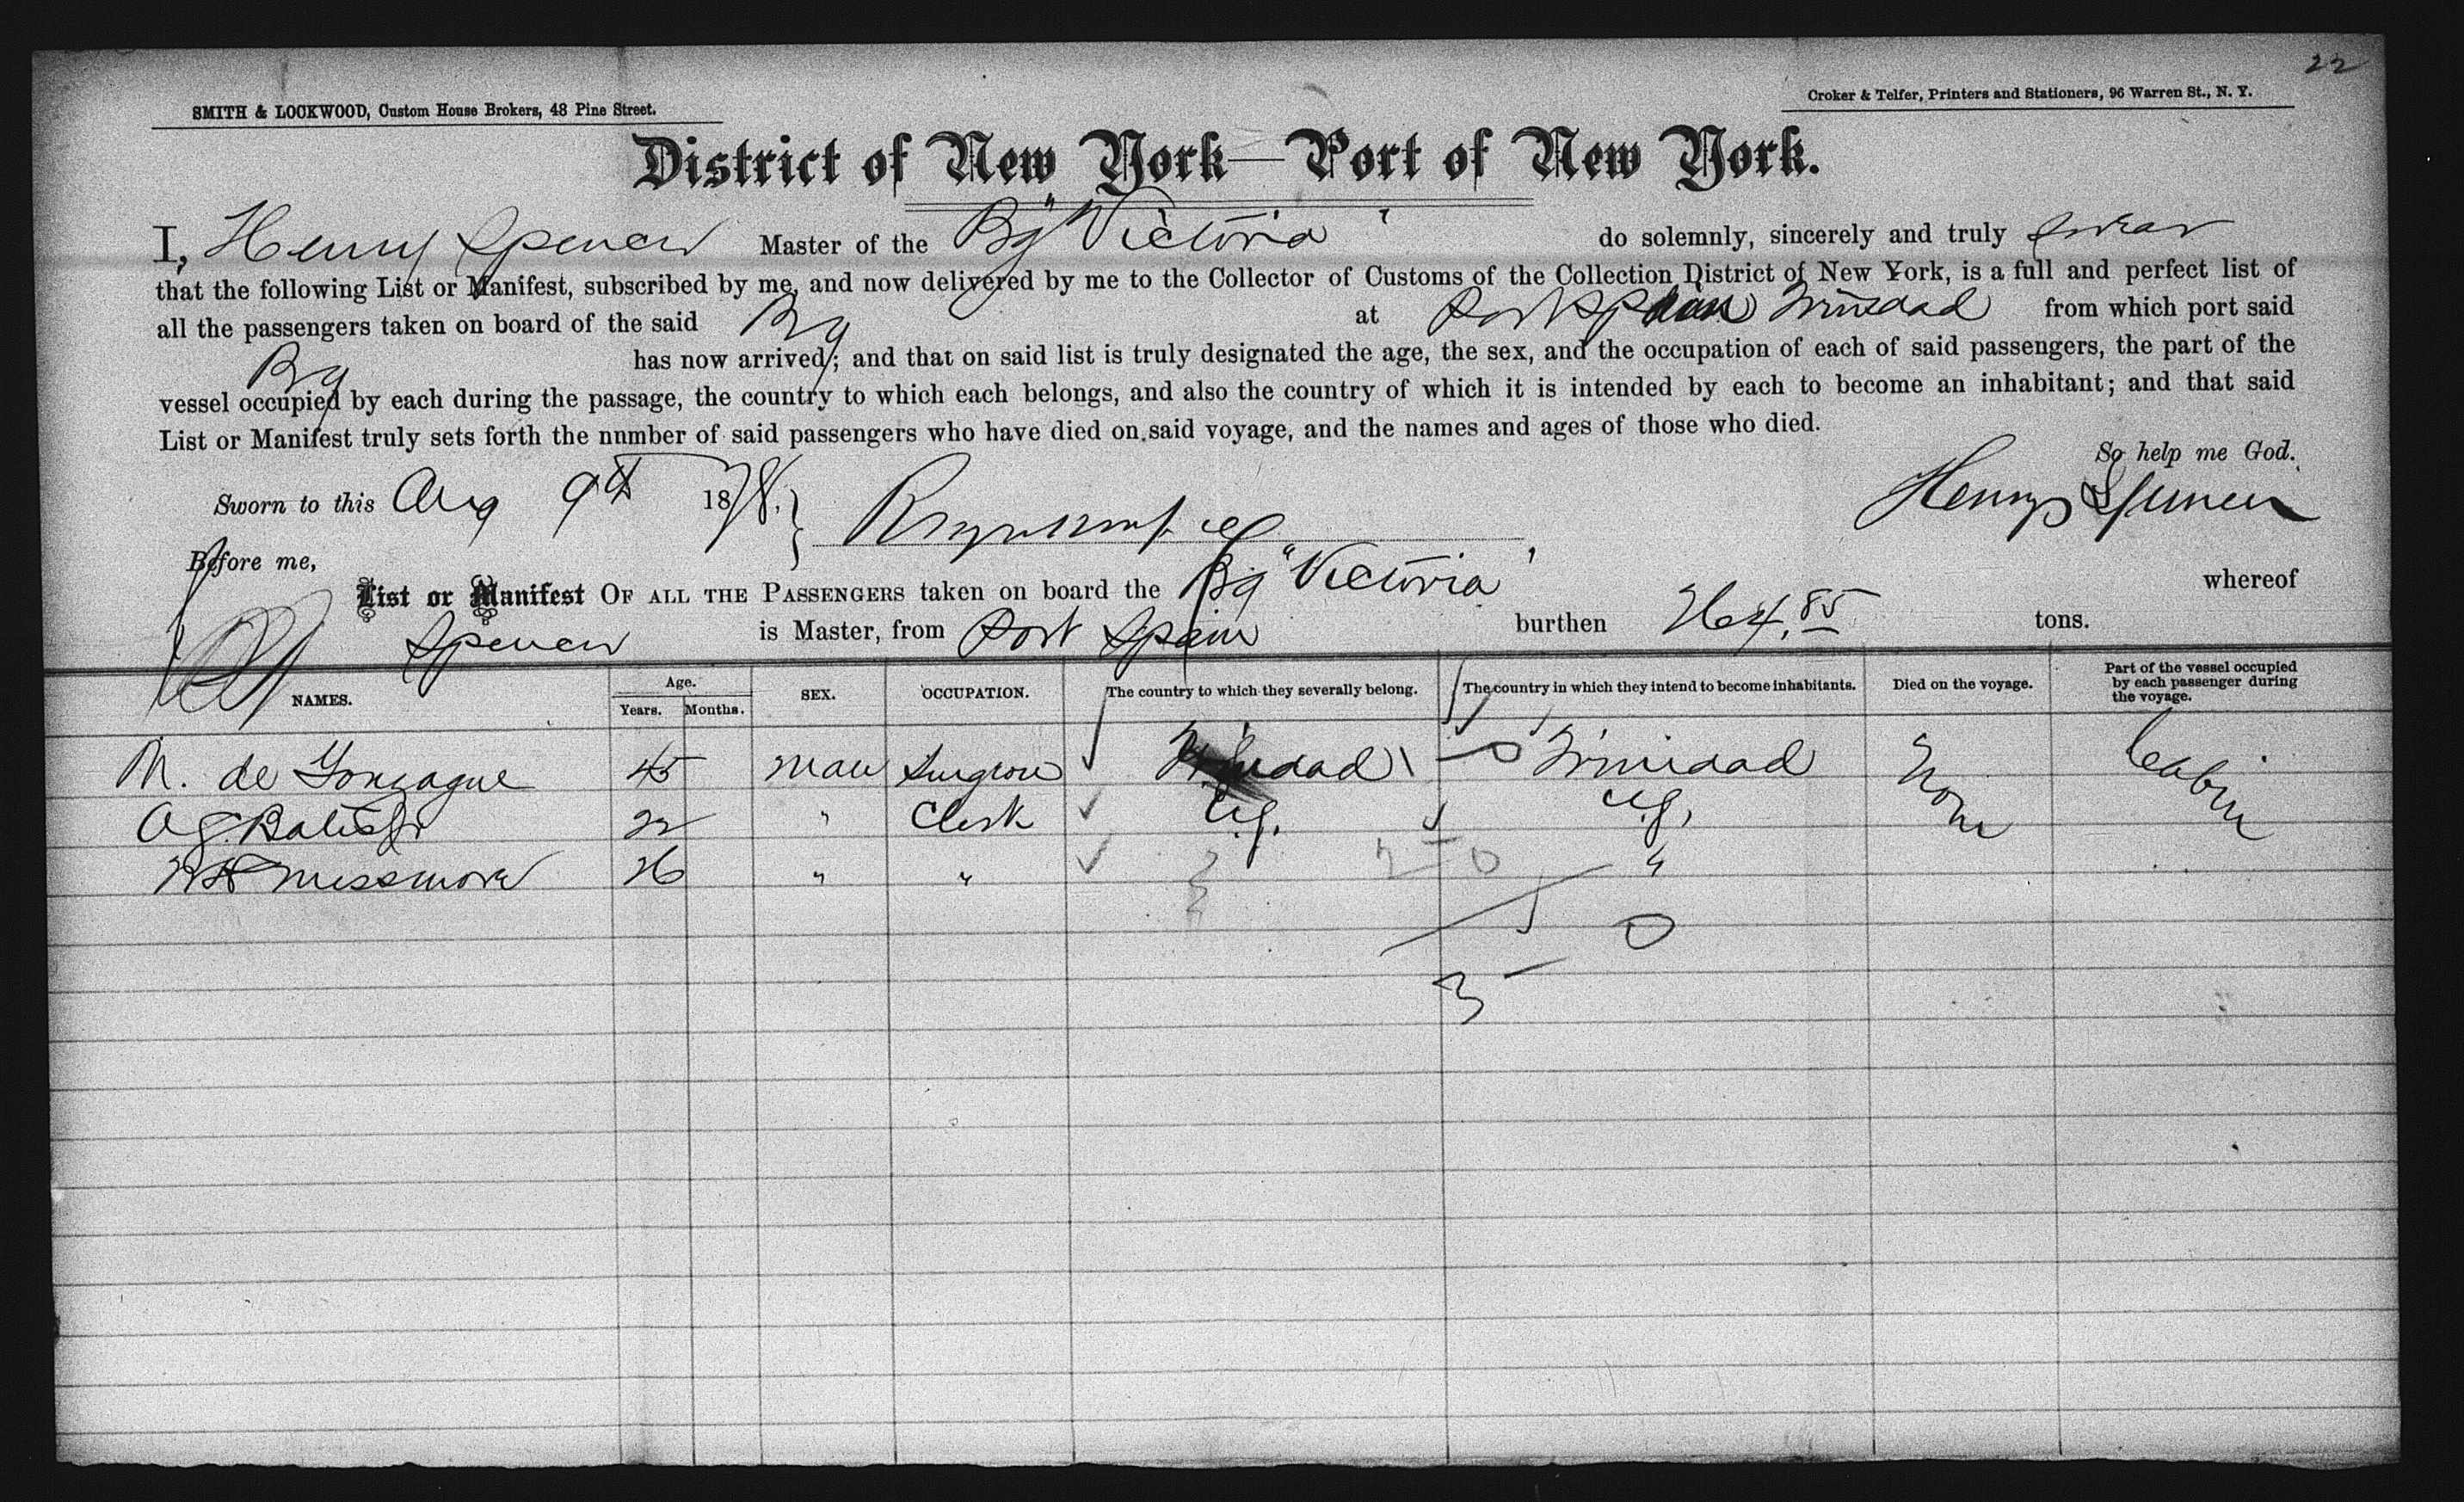 22
SMITH & LOCKWOOD, Custom House Brokers, 48 Pine Street.
Croker & Telfer, Printers and Stationers, 96 Warren St., N. Y.
District of New York—Port of New York.
I, Henry Spencer Master of the Bg "Victoria" do solemnly, sincerely and truly swear
that the following List or Manifest, subscribed by me, and now delivered by me to the Collector of Customs of the Collection District of New York, is a full and perfect list of
all the passengers taken on board of the said Bg at Port Spain Trinidad from which port said
Bg has now arrived; and that on said list is truly designated the age, the sex, and the occupation of each of said passengers, the part of the
vessel occupied by each during the passage, the country to which each belongs, and also the country of which it is intended by each to become an inhabitant; and that said
List or Manifest truly sets forth the nnmber of said passengers who have died on said voyage, and the names and ages of those who died.
So help me God.
Sworn to this Aug 9th 1878. Henry Spencer
Before me,
List or Manifest OF ALL THE PASSENGERS taken on board the Bg "Victoria" whereof
Spencer is Master, from Port Spain burthen 264.85 tons.
NAMES. Age. Years. Months. SEX. OCCUPATION. The country to which they severally belong. The country in which they intend to become inhabitants. Died on the voyage. Part of the vessel occupied by each passenger during the voyage.
M. de Gonzague 45 Male Surgeon Trinidad Trinidad None Cabin
22 " Clerk
26 " " "
0
3